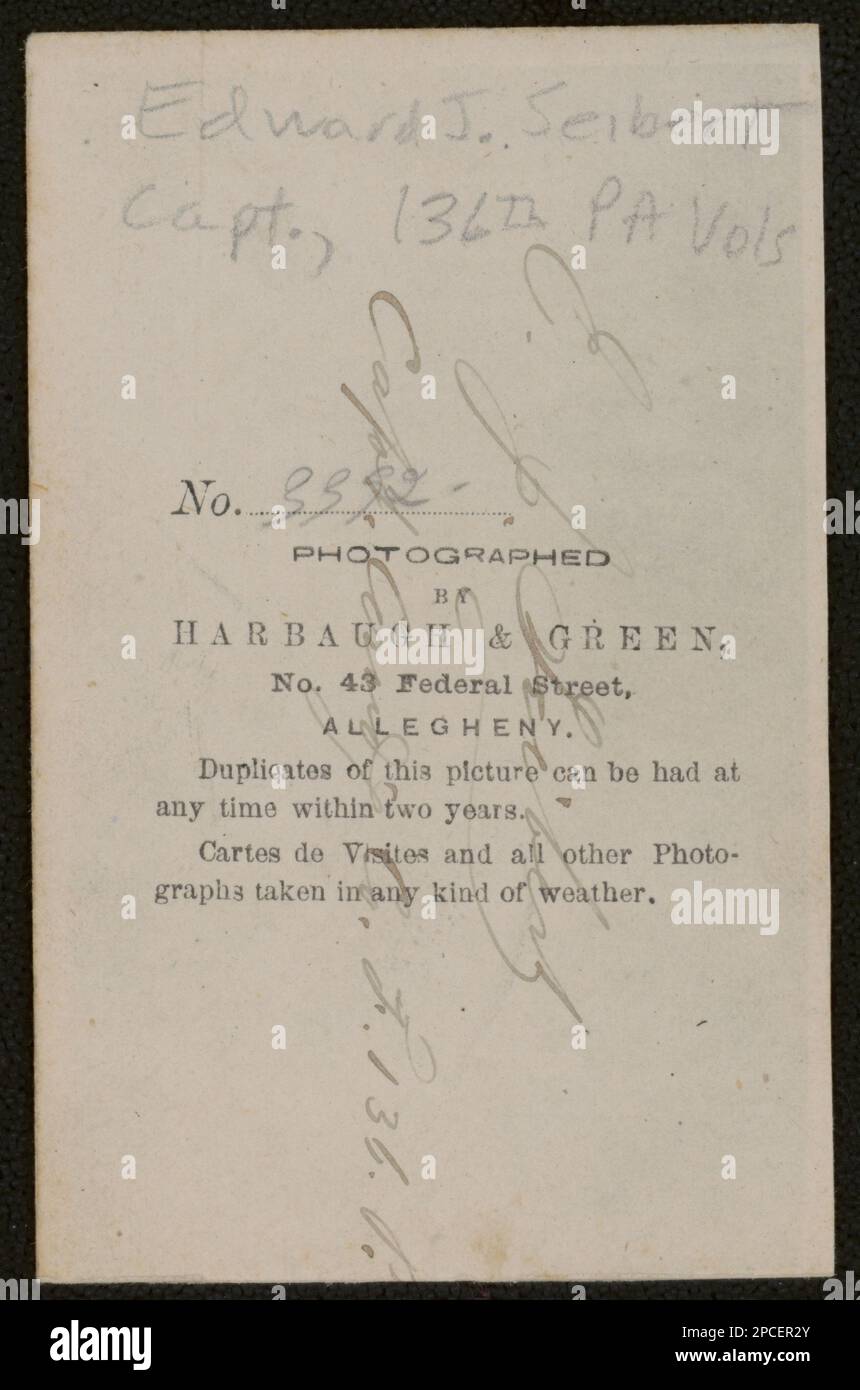 Edward J. Seibert
Capt., 136th PA Vols
No. 3392-
PHOTOGRAPHED
BY
HARBAUGH & GREEN,
No. 43 Federal Street,
ALLEGHENY.
Duplicates of this picture can be had at
any time within two years.
Cartes de Visites and all other Photo-
graphs taken in any kind of weather.
E. J. Seibert
Capt. Comdg. Co. F. 136. P.
alamy
Image ID: 2PCER2Y
www.alamy.com